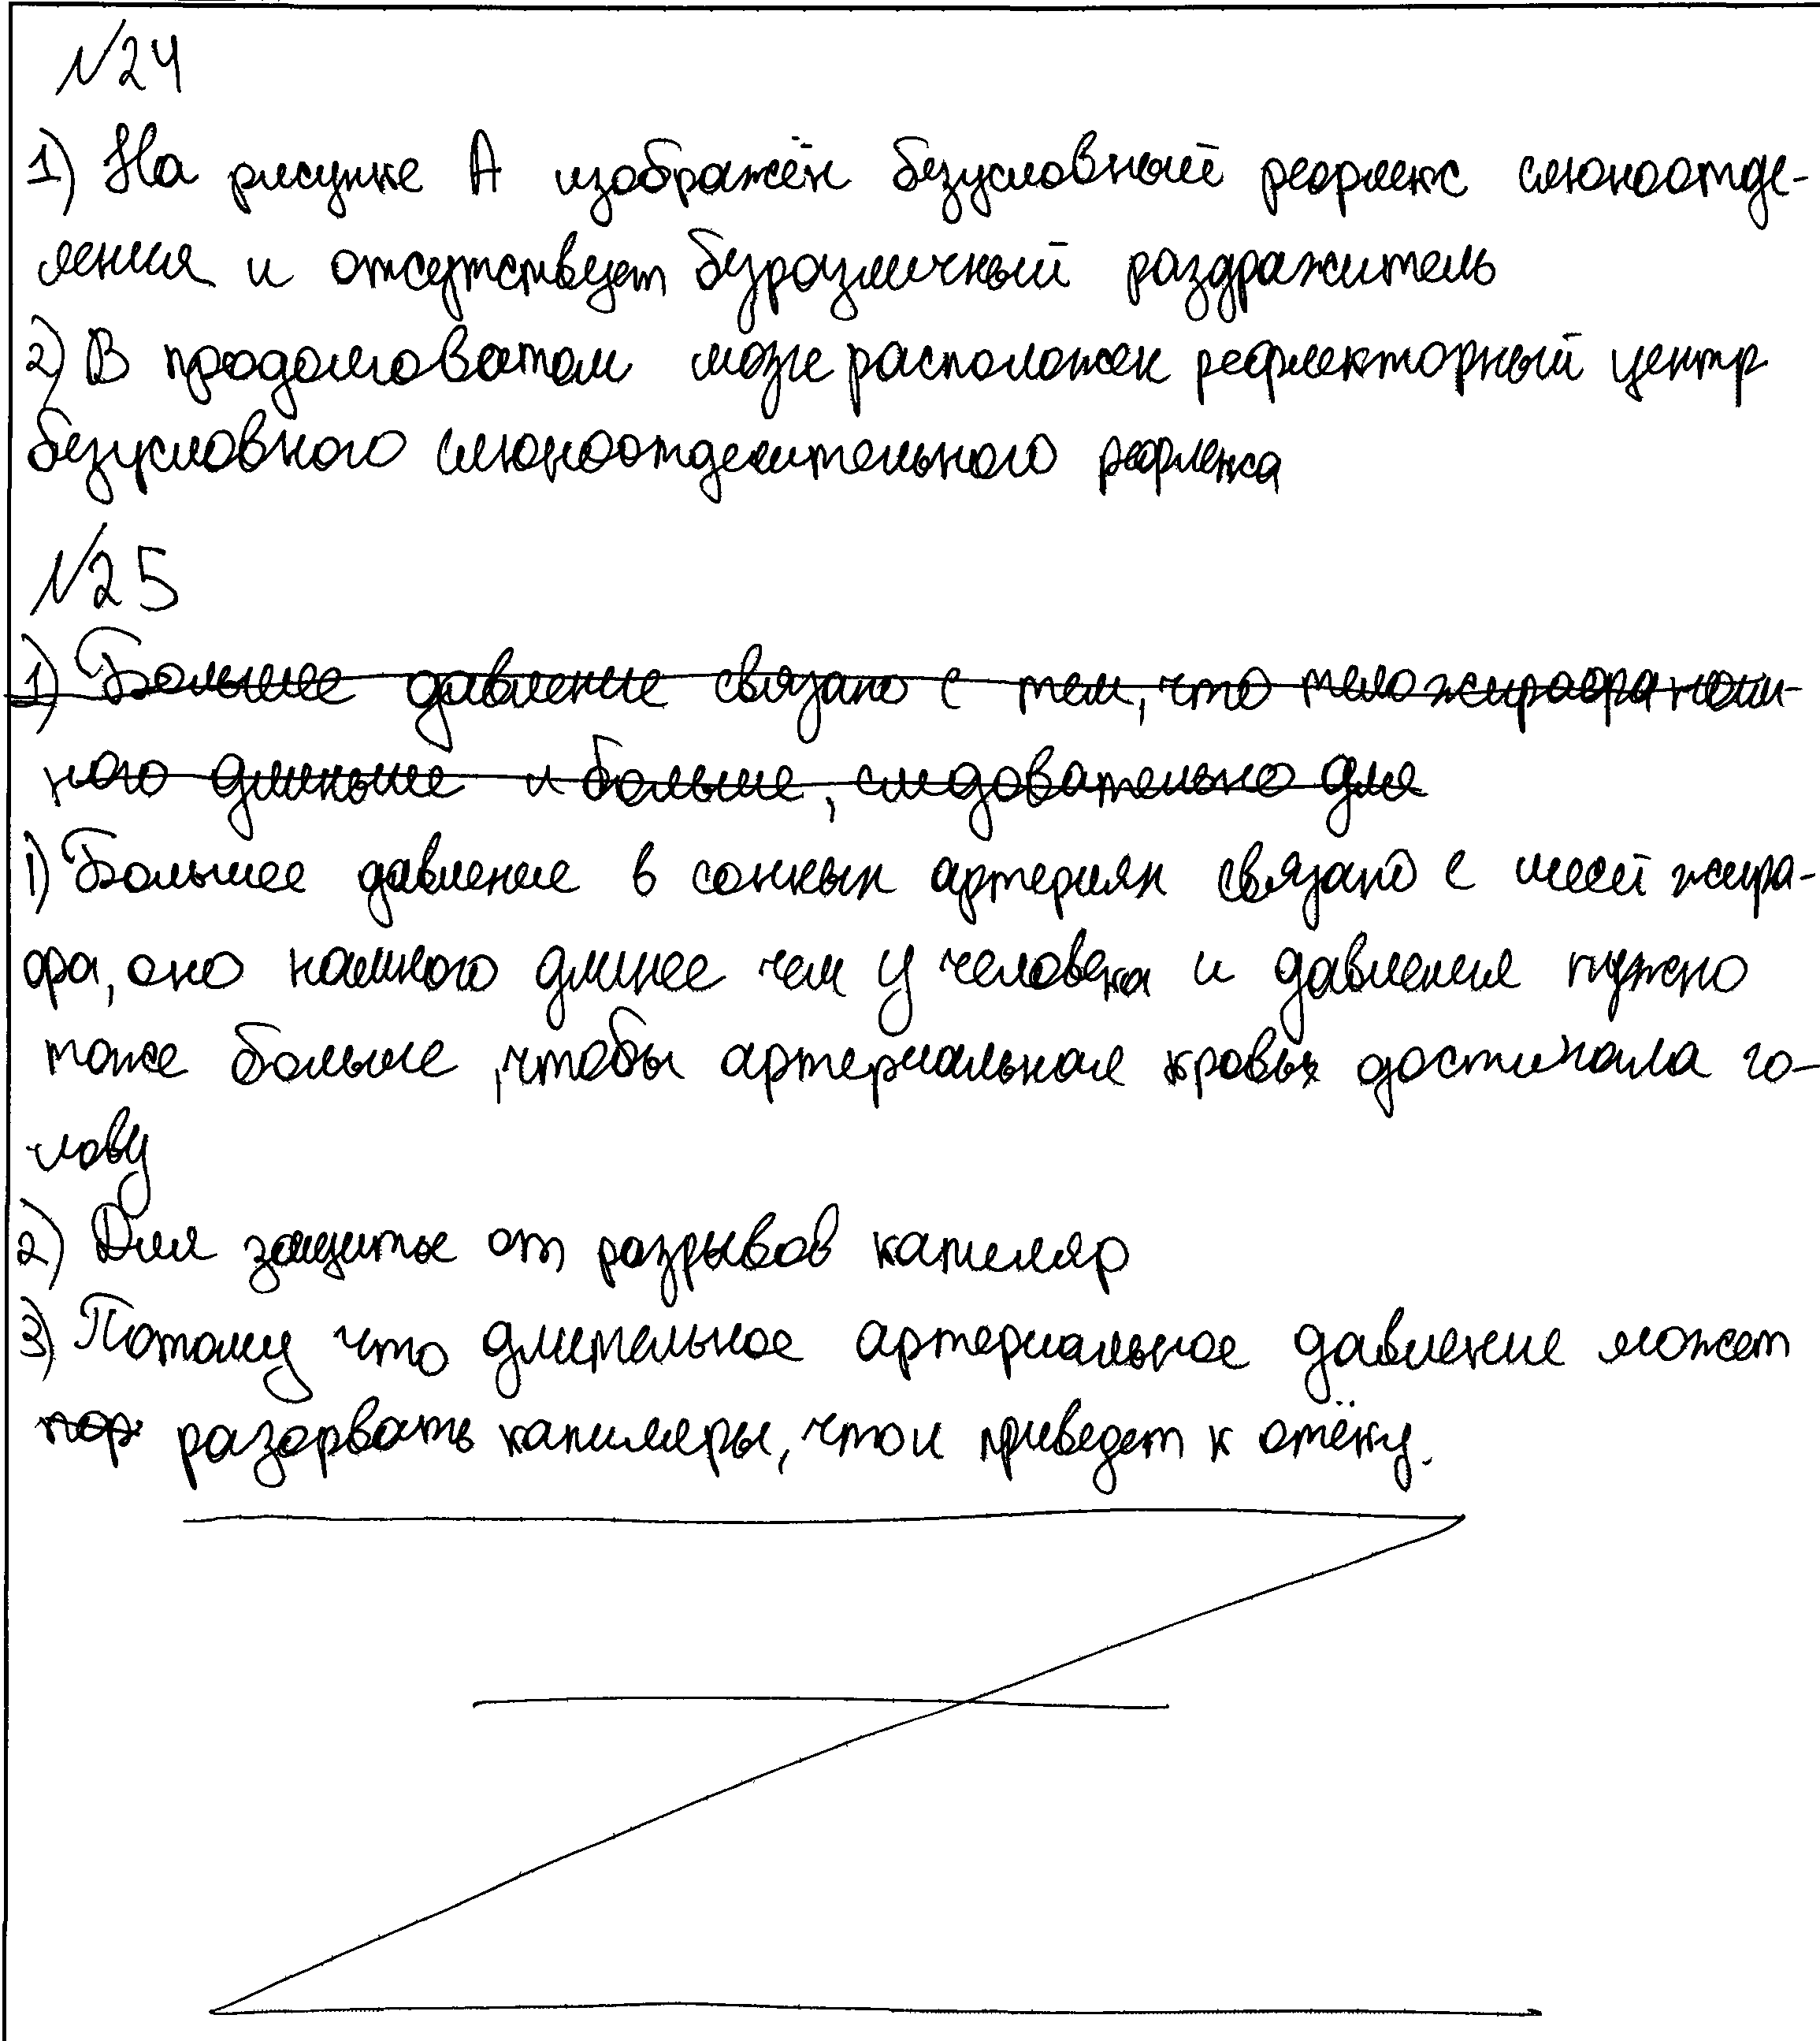 №24
1) На рисунке А изображён безусловный рефлекс слюноотде-
ления и отсутствует безразличный раздражитель
2) В продолговатом мозге расположен рефлекторный центр
безусловного слюноотделительного рефлекса
№25
1) Большее давление связано с тем, что тело жирафа нам-
ного длиньше и больше, следовательно для
1) Большее давление в сонных артериях связано с шеей жира-
фа, оно намного длинее чем у человека и давления нужно
тоже больше, чтобы артериальная кровь достигала го-
лову
2) Для защиты от разрывов капиляр
3) Потому что длительное артериальное давление может
пор разорвать капиляры, что и приведет к отёку.